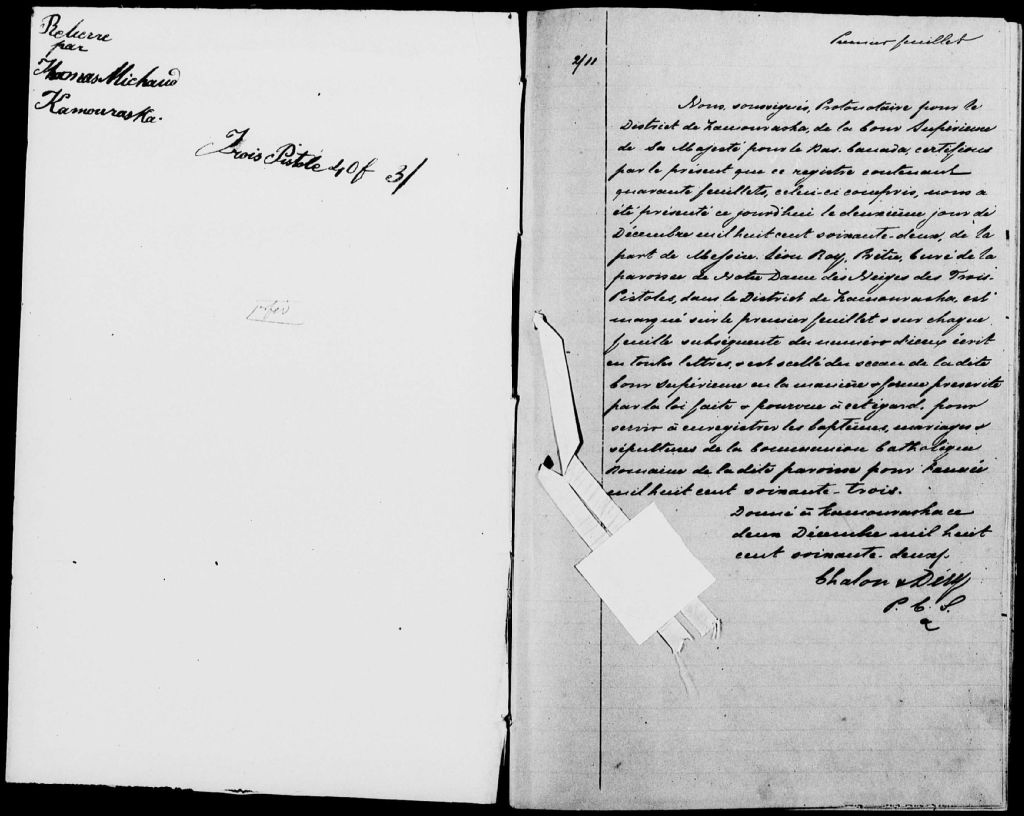 Relierre
par
Thomas Michaud
Kamouraska.
Trois Pistole 40 f 3/
Premier feuillet
2/11
Nous, soussignés, Protonotaire pour le
District de Kamouraska, de la Cour Supérieure
de Sa Majesté pour le Bas-Canada, certifions
par le présent que ce registre contenant
quarante feuillets, celui-ci compris, nous a
été présenté ce jourd'hui le deuxième jour de
Décembre mil huit cent soixante-deux, de la
part de Messire Léon Roy, Prêtre, Curé de la
paroisse de Notre Dame des Neiges des Trois-
Pistoles, dans le District de Kamouraska, est
marqué sur le premier feuillet & sur chaque
feuille subséquente du numéro d'iceux écrit
en toutes lettres, & est scellé du sceau de la dite
Cour Supérieure en la manière & forme prescrite
par la loi faite & pourvue à cet égard, pour
servir à enregistrer les baptêmes, mariages &
sépultures de la Communion Catholique
Romaine de la dite paroisse pour l'année
mil huit cent soixante-trois.
Donné à Kamouraska ce
deux Décembre mil huit
cent soixante-deux.
Chalou & Déry
P. C. S.